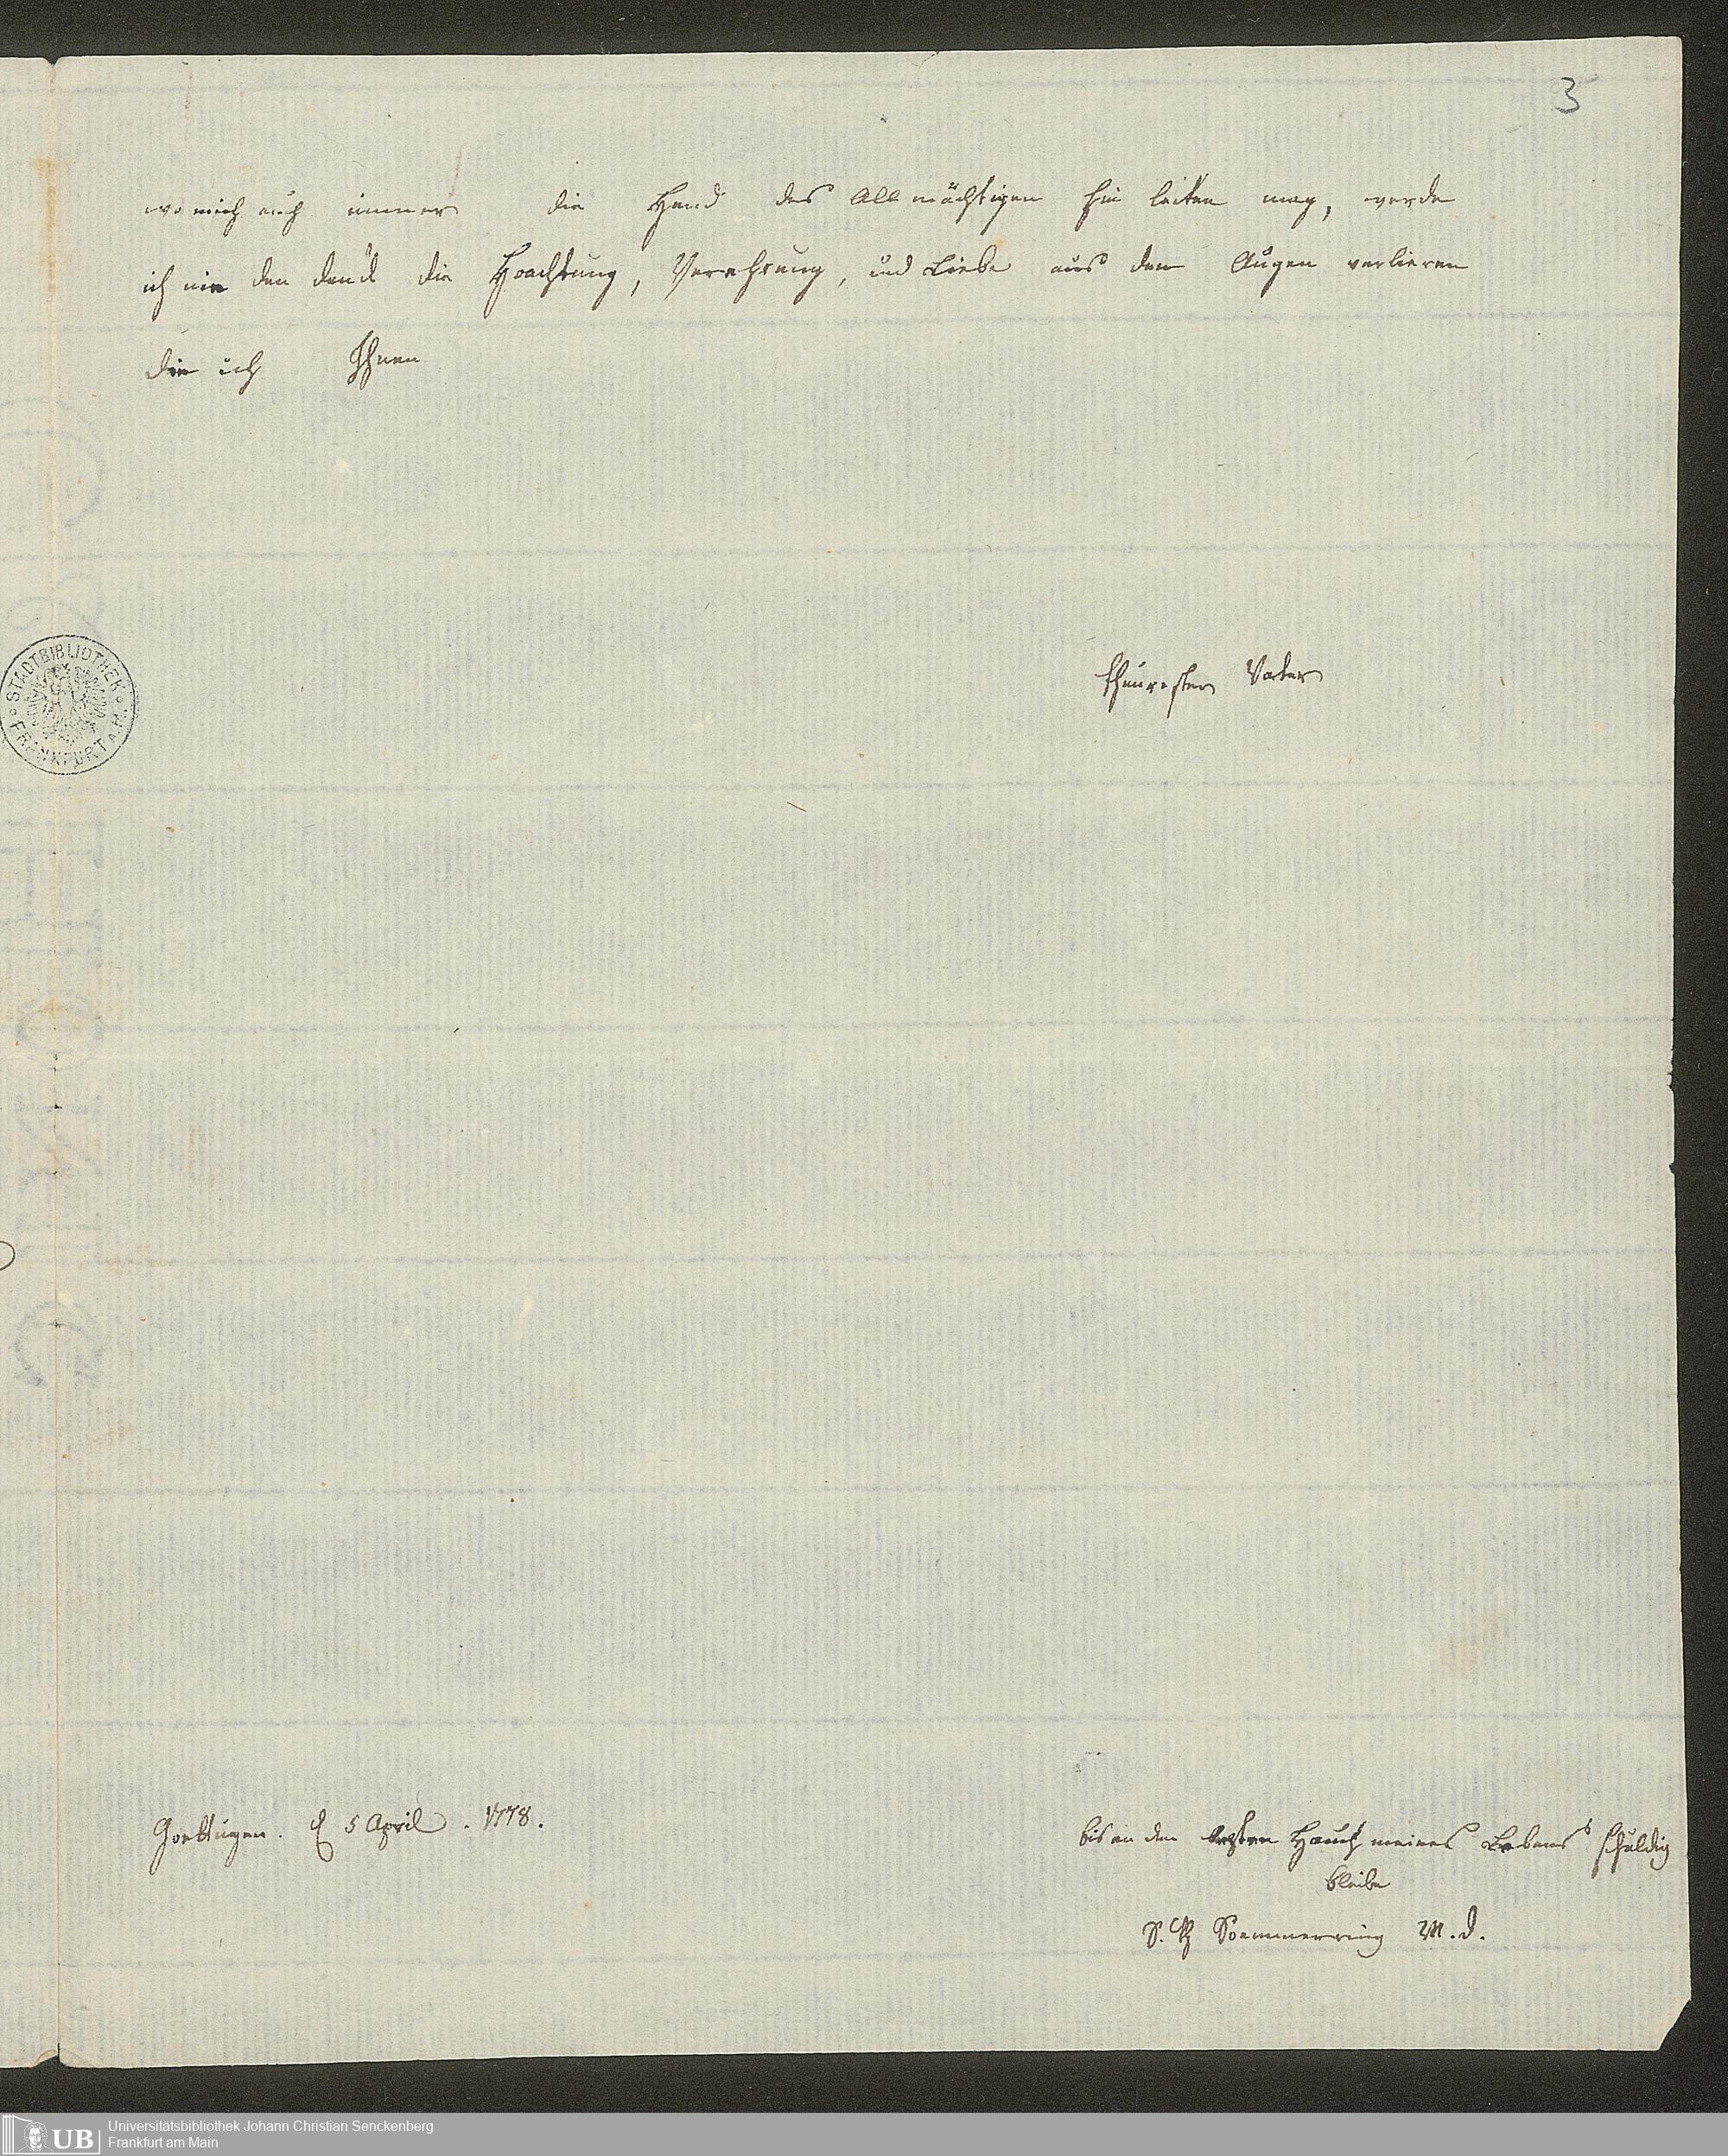 3
wo mich auch immer die Hand des Allmächtigen hin leiten mag, werde
ich nie den danck die Hoachtung, Verehrung, und Liebe aus den Augen verlieren
die ich Ihnen
theurester Vater
STADTBIBLIOTHEK
FRANKFURT A.M.
Goettingen. d 5 April. 1778.
bis an den letzten Hauch meines Lebens schuldig
bleibe
S. Th Soemmerring M.d.
UB
Universitätsbibliothek Johann Christian Senckenberg
Frankfurt am Main